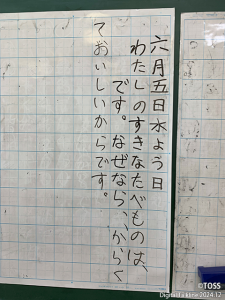 六月五日水よう日
わたしのすきなたべものは、
です。なぜなら、からく
ておいしいからです。
©TOSS